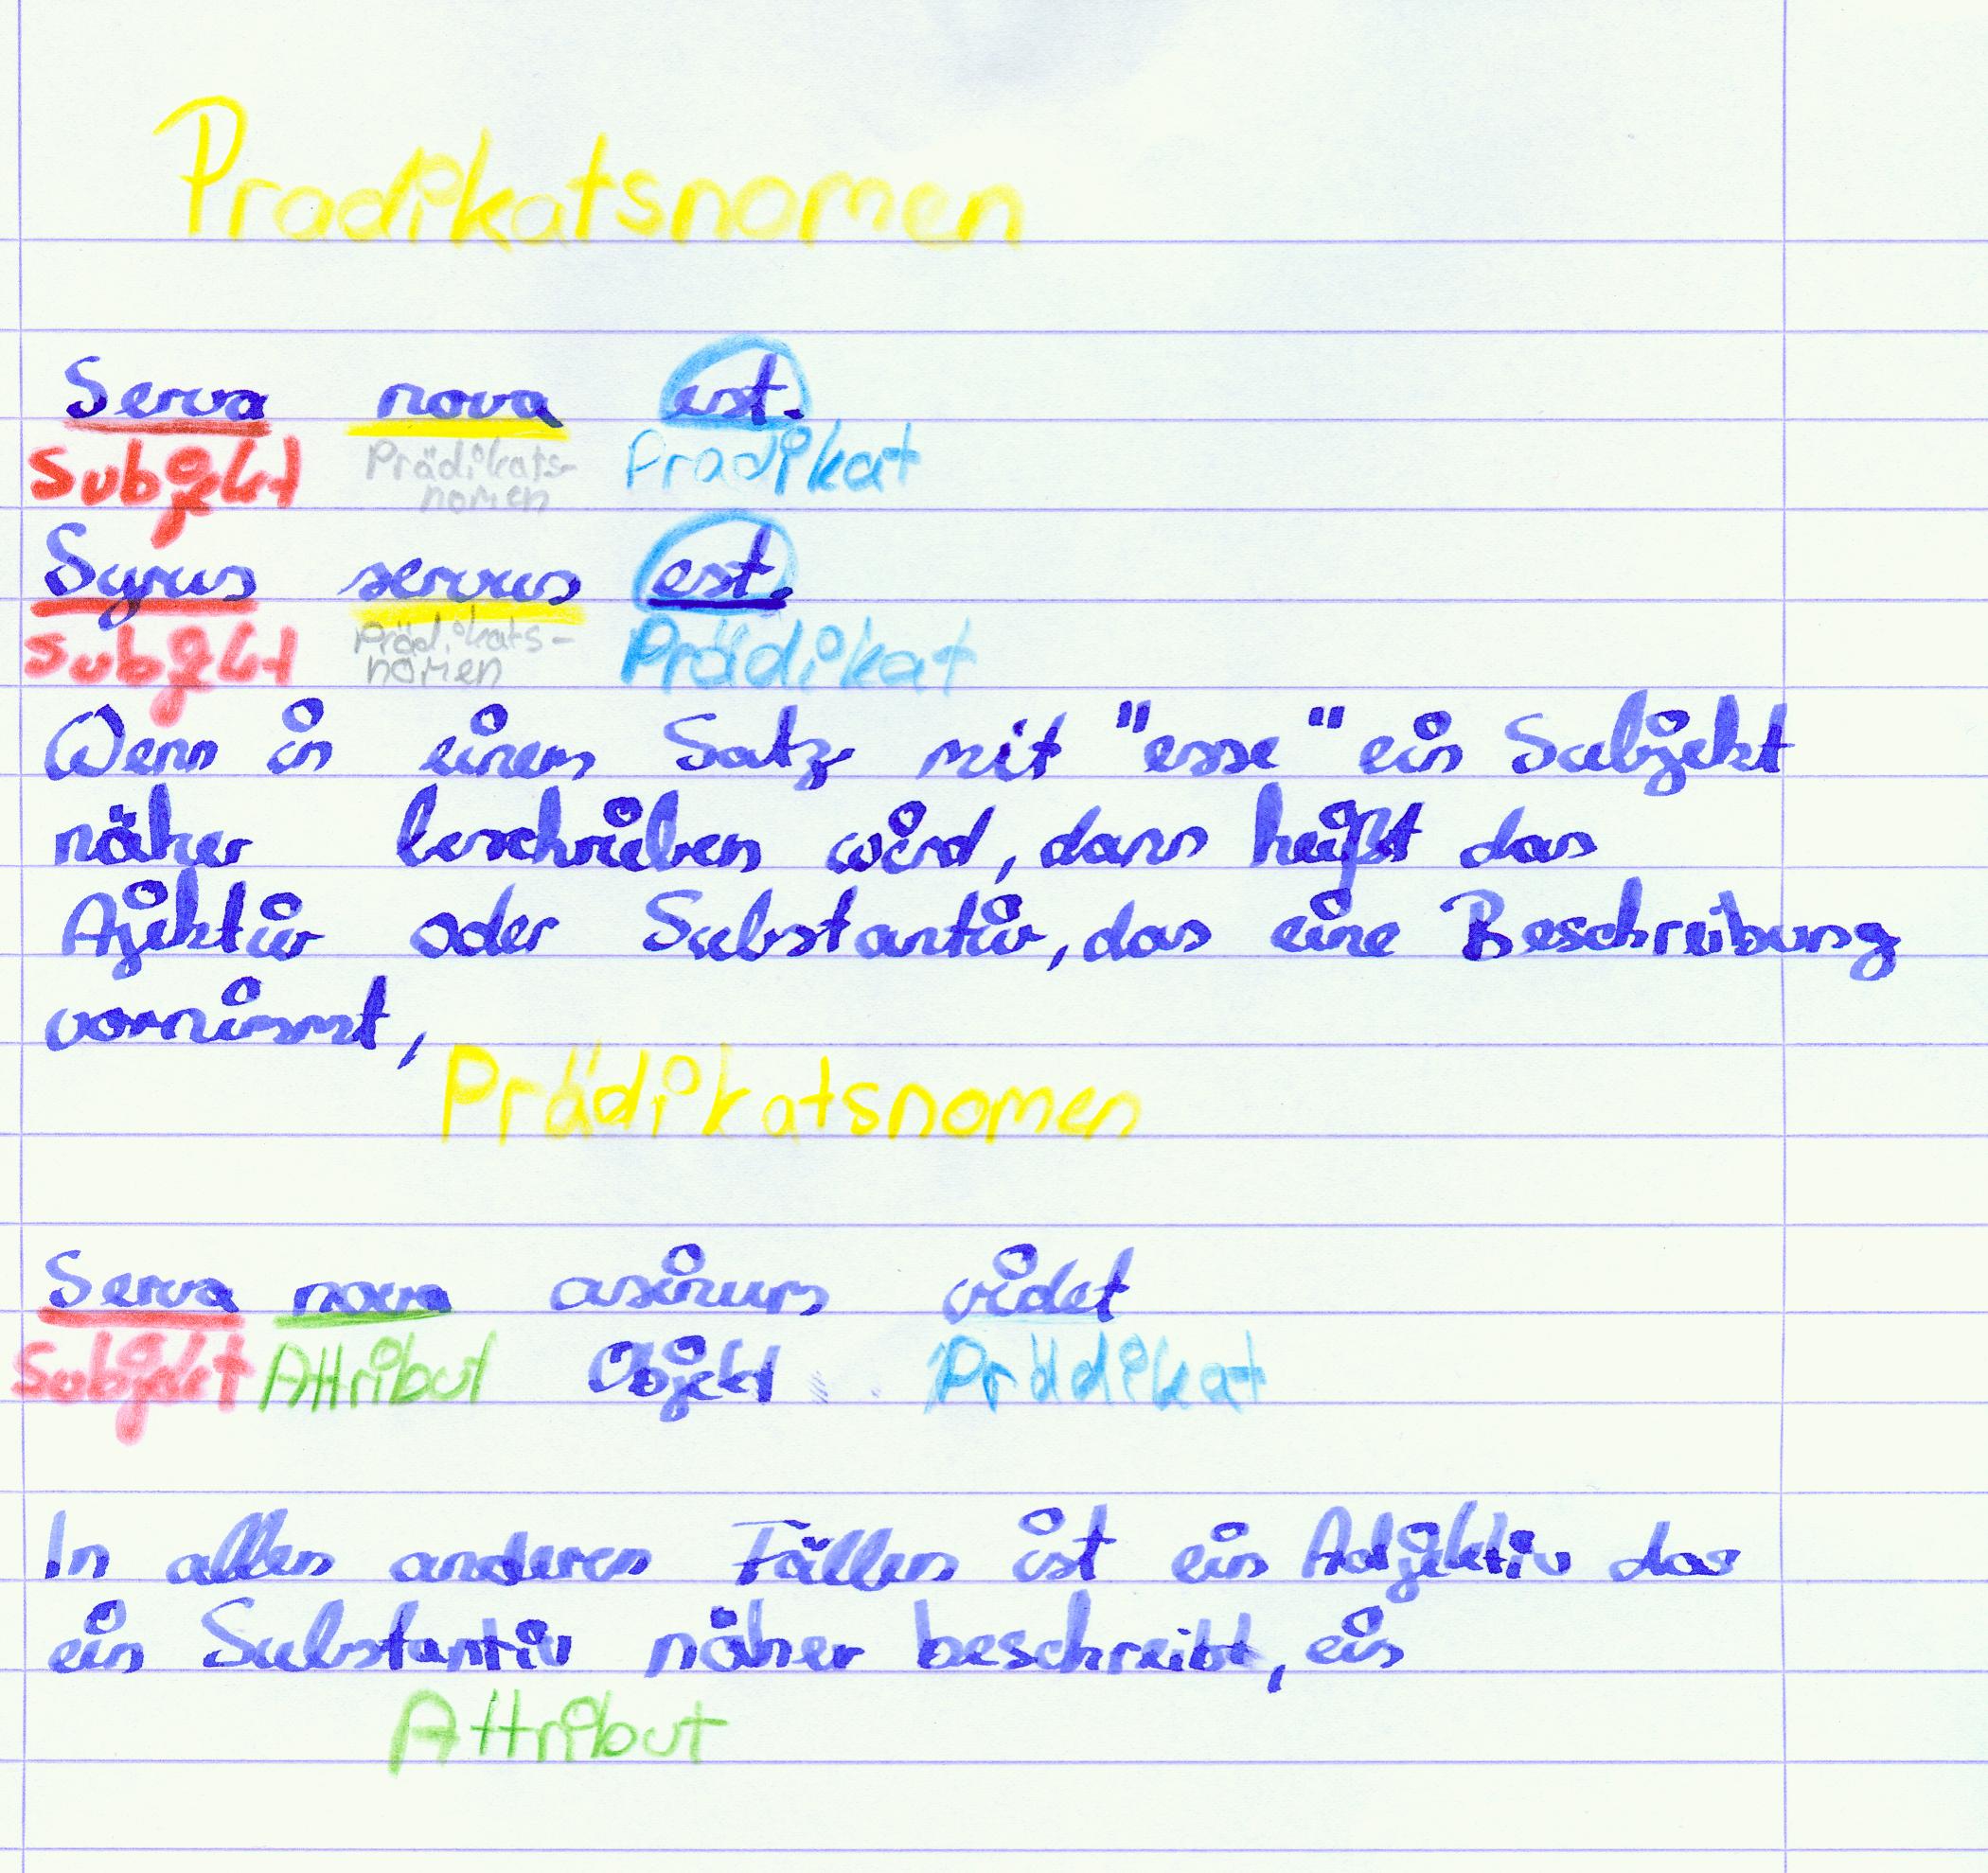 Pradikatsnomen
Serva nova est.
Subjekt Prädikats- Pradikat
nomen
Syrus servus est.
Subjekt Prädikats- Prädikat
nomen
Wenn in einem Satz mit "esse" ein Subjekt
näher beschrieben wird, dann heißt das
Ajektiv oder Substantiv, das eine Beschreibung
vornimmt,
Prädikatsnomen
Serva nova asinum videt
Subjekt Attribut Objekt Prädikat
In allen anderen Fällen ist ein Adjektiv das
ein Substantiv näher beschreibt, ein
Attribut